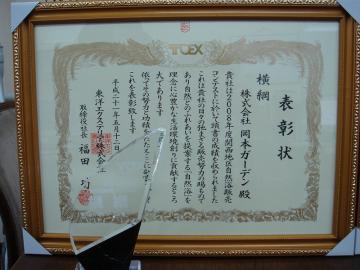 TOEX
表彰状
横綱
株式会社 岡本ガーデン 殿
貴社は2008年度関西地区自然浴販売
コンテストに於いて頭書の成績を収められました
これは貴社の日々の弛まざる販売努力の賜もので
あり自然とのふれあいを提案する「自然浴」を
理念に心豊かな生活環境創りに貢献するところ
大であります
依ってその努力と功績を
これを表彰致します
平成二十一年五月十二日
東洋エクステリア株式会社
取締役社長 福田 功